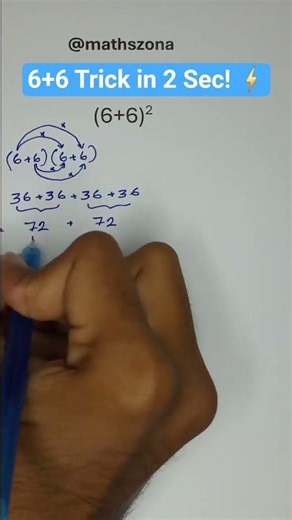 @mathszona
6+6 Trick in 2 Sec! ⚡
(6+6)²
(6+6)(6+6)
36+36+36+36
72 + 72